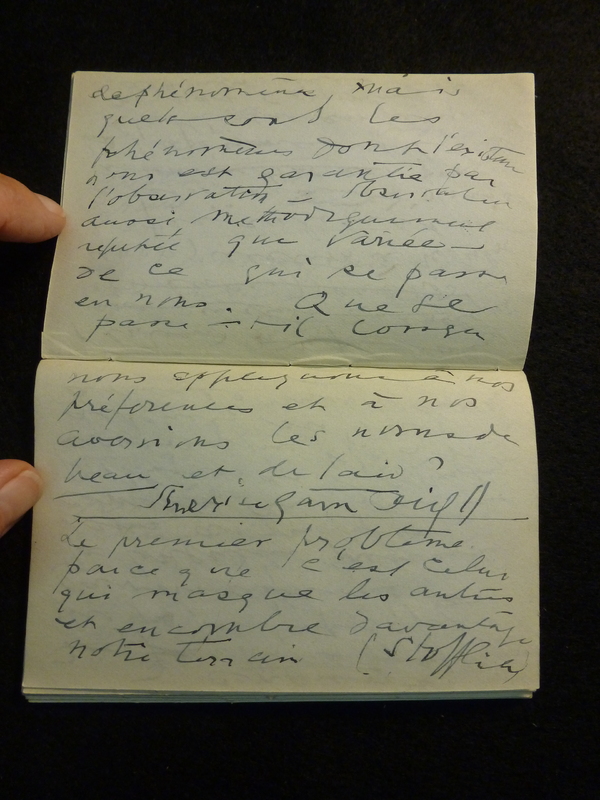 de phénomène, mais
quels sont les
phénomènes dont l'existence
nous est garantie par
l'observation — observation
aussi méthodiquement
répétée que variée —
de ce qui se passe
en nous. Que se
passe-t-il lorsque
nous appliquons à nos
préférences et à nos
aversions les noms de
beau et de laid?
Le premier problème
parce que c'est celui
qui masque les autres
et encombre davantage
notre terrain